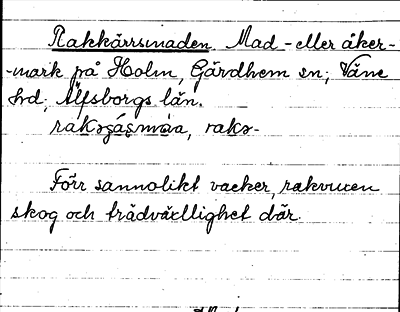 Rakkärrsmaden. Mad- eller åker-
-mark på Holm, Gärdhem sn; Väne
hd; Älfsborgs län.
rakə-
Förr sannolikt vacker, rakvuxen
skog och trädväxllighet där.